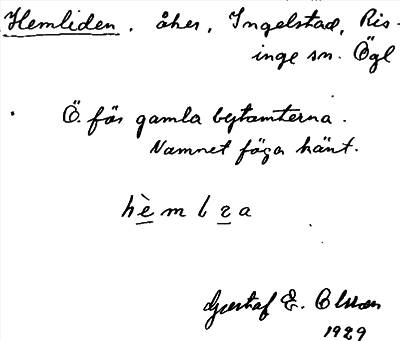 Hemliden. åker, Ingelstad, Ris-
inge sn. Ögl
Ö. för gamla bytomterna.
Namnet föga känt.
hèmlɿa
Gustaf E. Olsson
1929